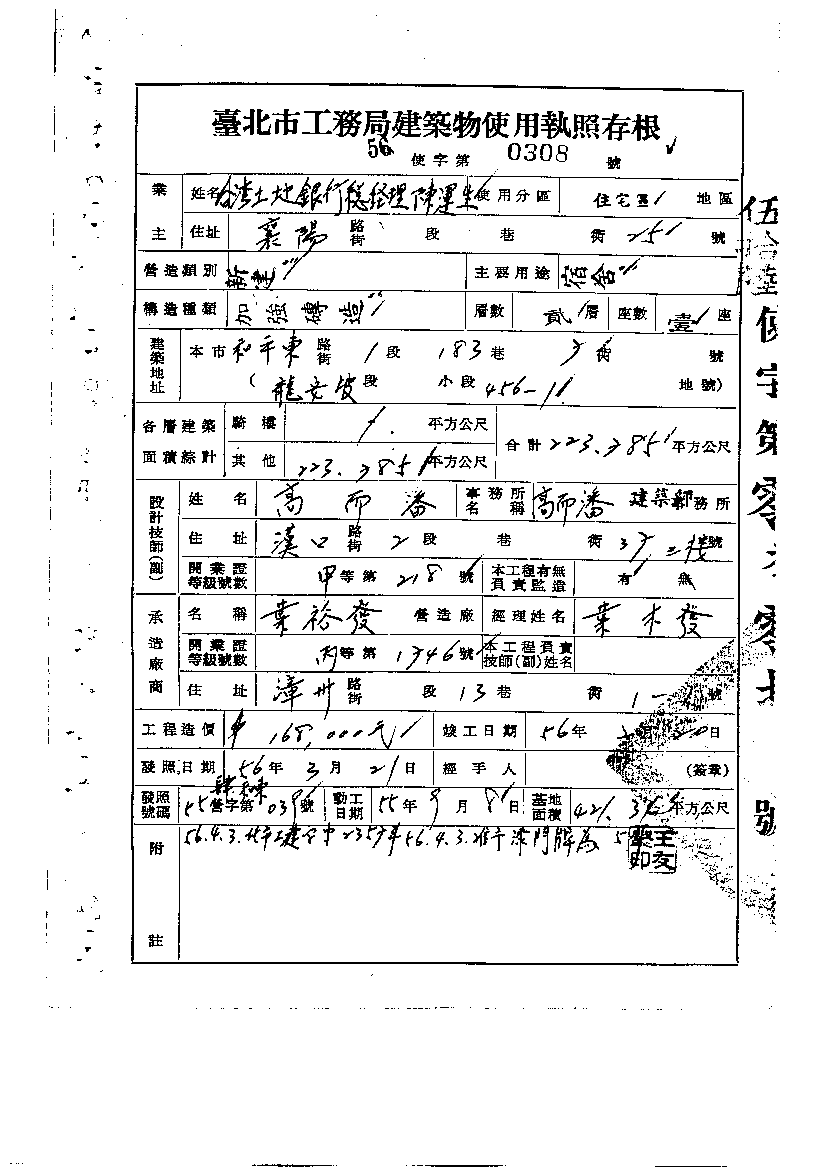 臺北市工務局建築物使用執照存根
56 使字第 0308 號
業主 姓名 台灣土地銀行總經理陳運生 使用分區 住宅區 地區
住址 襄陽 路街 段 巷 衖 25 號
營造類別 新建 主要用途 宿舍
構造種類 加強磚造 層數 貳 層 座數 壹 座
建築地址 本市 和平東 路街 1 段 183 巷 衖 號
(龍安坡 段 小段 456-1 地號)
各層建築面積綜計 騎樓 平方公尺 合計 223.2851 平方公尺
其他 223.2851 平方公尺
設計技師(副) 姓名 高而潘 事務所名稱 高而潘 建築師 務所
住址 漢口 路街 2 段 巷 衖 號
開業證等級號數 甲 等第 218 號 本工程有無負責監造 有 無
承造廠商 名稱 葉裕發 營造廠 經理姓名 葉木發
開業證等級號數 丙 等第 1346 號 本工程負責技師(副)姓名
住址 漳州 路街 段 13 巷 衖 號
工程造價 168,000元 竣工日期 56年 月 20日
發照日期 56年3月21日 經手人 (簽章)
發照號碼 55營字第 號 動工日期 55年9月8日 基地面積 平方公尺
附註 56.4.3. 56.4.3. 門牌為
伍拾陸使字第零零 號